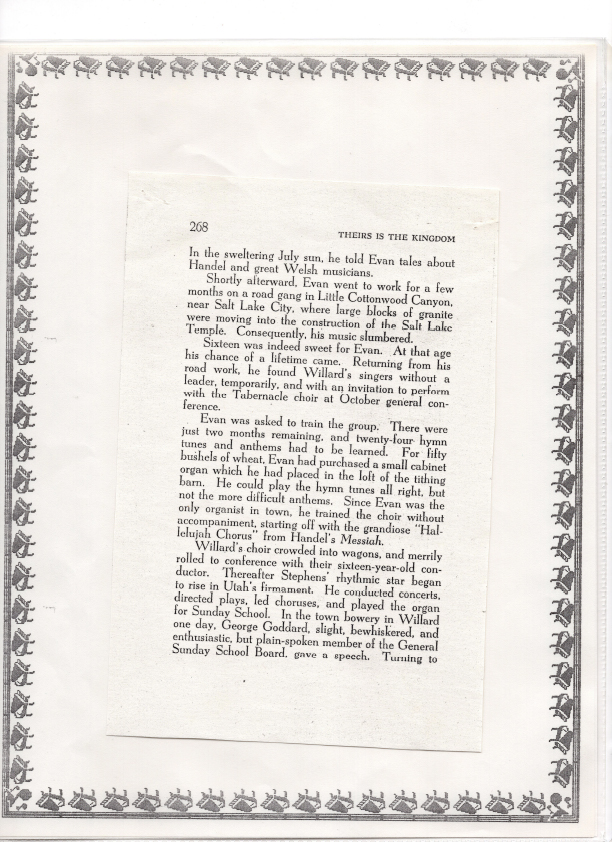 268
THEIRS IS THE KINGDOM
In the sweltering July sun, he told Evan tales about
Handel and great Welsh musicians.
Shortly afterward, Evan went to work for a few
months on a road gang in Little Cottonwood Canyon,
near Salt Lake City, where large blocks of granite
were moving into the construction of the Salt Lake
Temple. Consequently, his music slumbered.
Sixteen was indeed sweet for Evan. At that age
his chance of a lifetime came. Returning from his
road work, he found Willard's singers without a
leader, temporarily, and with an invitation to perform
with the Tabernacle choir at October general con-
ference.
Evan was asked to train the group. There were
just two months remaining, and twenty-four hymn
tunes and anthems had to be learned. For fifty
bushels of wheat, Evan had purchased a small cabinet
organ which he had placed in the loft of the tithing
barn. He could play the hymn tunes all right, but
not the more difficult anthems. Since Evan was the
only organist in town, he trained the choir without
accompaniment, starting off with the grandiose "Hal-
lelujah Chorus" from Handel's Messiah.
Willard's choir crowded into wagons, and merrily
rolled to conference with their sixteen-year-old con-
ductor. Thereafter Stephens' rhythmic star began
to rise in Utah's firmament. He conducted concerts,
directed plays, led choruses, and played the organ
for Sunday School. In the town bowery in Willard
one day, George Goddard, slight, bewhiskered, and
enthusiastic, but plain-spoken member of the General
Sunday School Board, gave a speech. Turning to